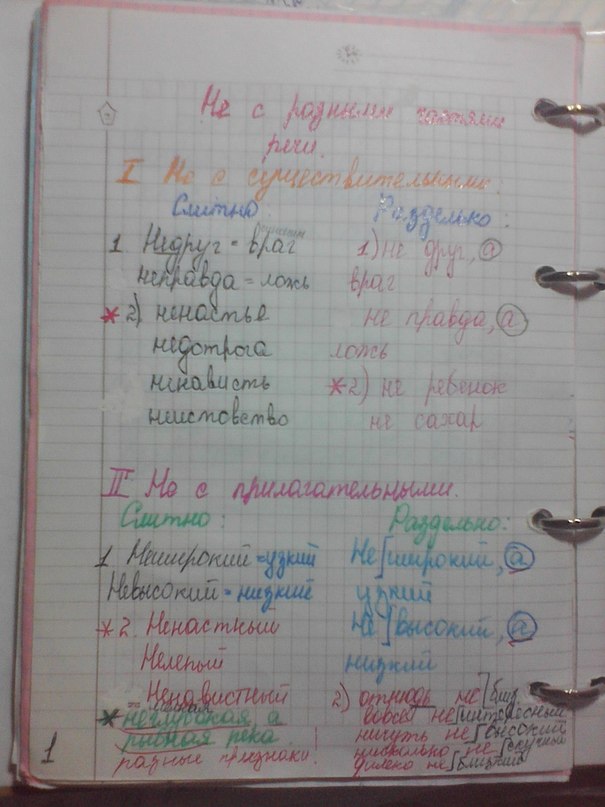 Не с разными частями
речи.
I Не с существительными.
Слитно: Раздельно:
1 Недруг = враг 1) не друг, а
неправда = ложь враг
* 2) ненастье не правда, а
недотрога ложь
ненависть * 2) не ребенок
неистовство не сахар
II Не с прилагательными.
Слитно: Раздельно:
1 Неширокий = узкий Не широкий, а
Невысокий = низкий узкий
* 2. Ненастный Не высокий, а
Нелепый низкий
Ненавистный 2) отнюдь не
* неглубокая, а вовсе не интересный
рыбная река ничуть не высокий
разные признаки. нисколько не скучный
далеко не близкий
1